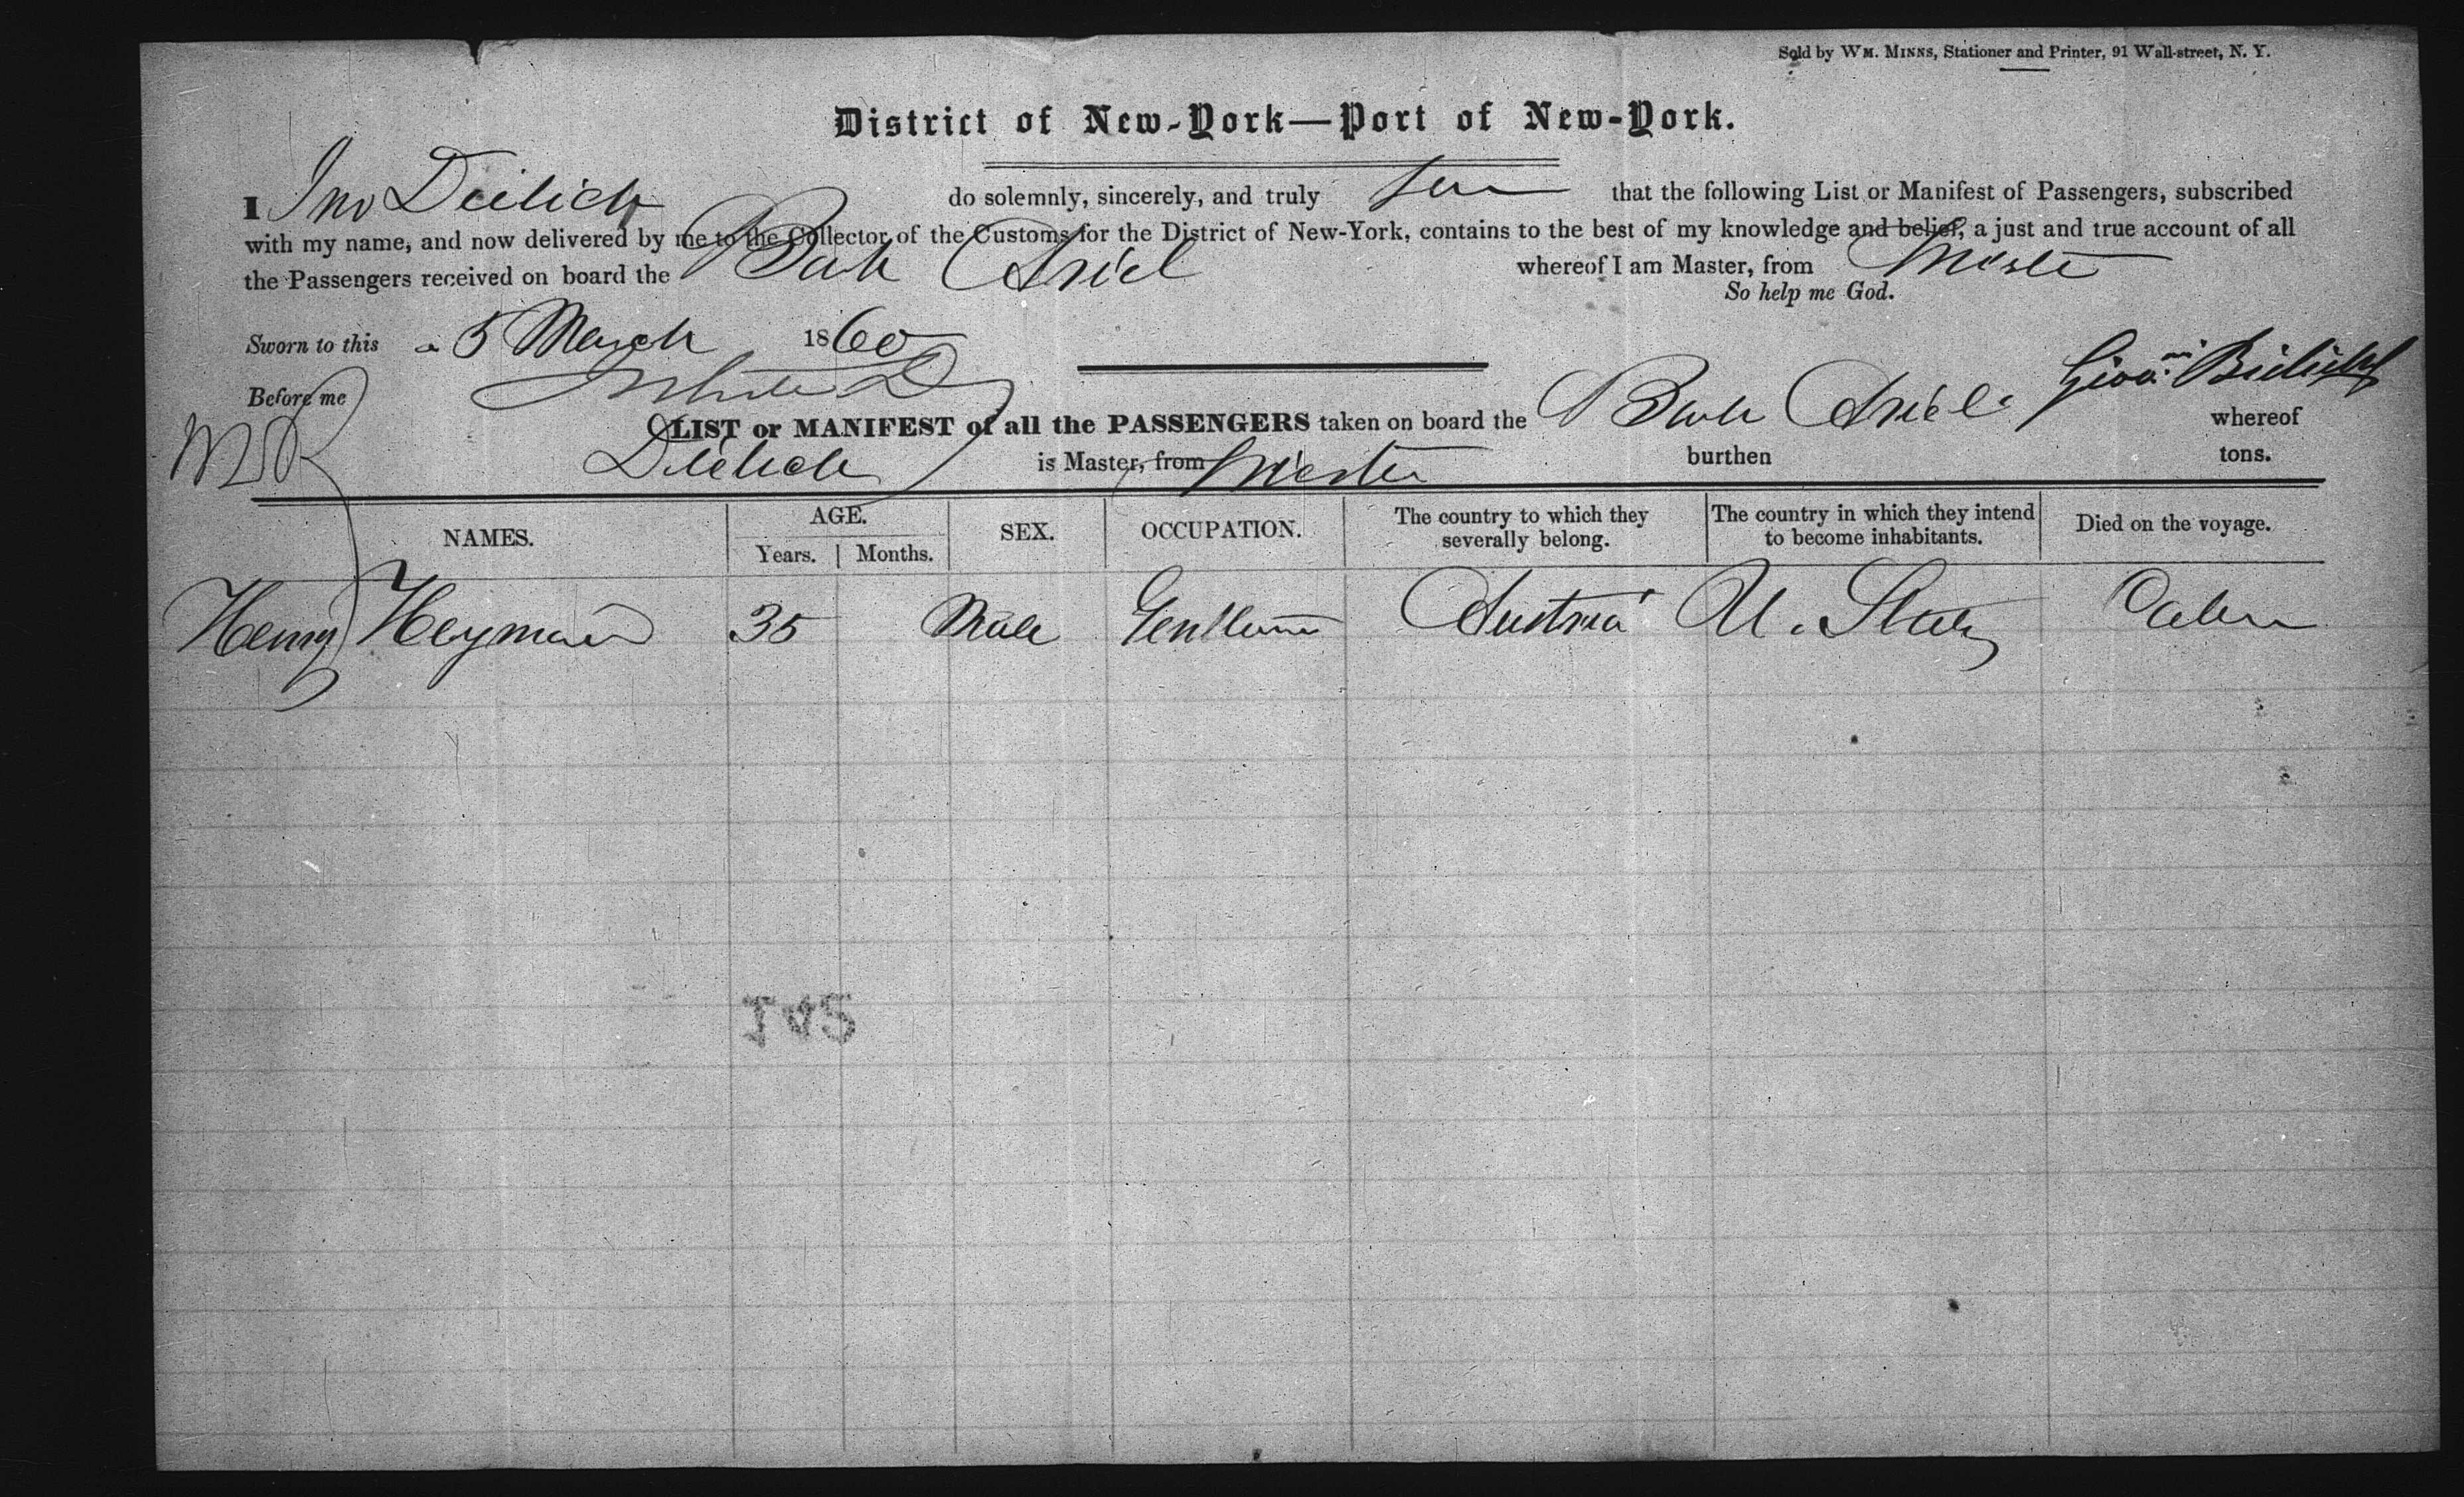 Sold by WM. MINNS, Stationer and Printer, 91 Wall-street, N. Y.
District of New-York—Port of New-York.
I Jno Deilich do solemnly, sincerely, and truly that the following List or Manifest of Passengers, subscribed
with my name, and now delivered by me to the Collector of the Customs for the District of New-York, contains to the best of my knowledge and belief, a just and true account of all
the Passengers received on board the Bark Ariel whereof I am Master, from Trieste
So help me God.
Sworn to this 5 March 1860
Before me
LIST or MANIFEST of all the PASSENGERS taken on board the Bark Ariel whereof
is Master, from Trieste burthen tons.
NAMES. AGE. Years. Months. SEX. OCCUPATION. The country to which they severally belong. The country in which they intend to become inhabitants. Died on the voyage.
Henry Heyman 35 Male Gentleman Austria U. States Cabin